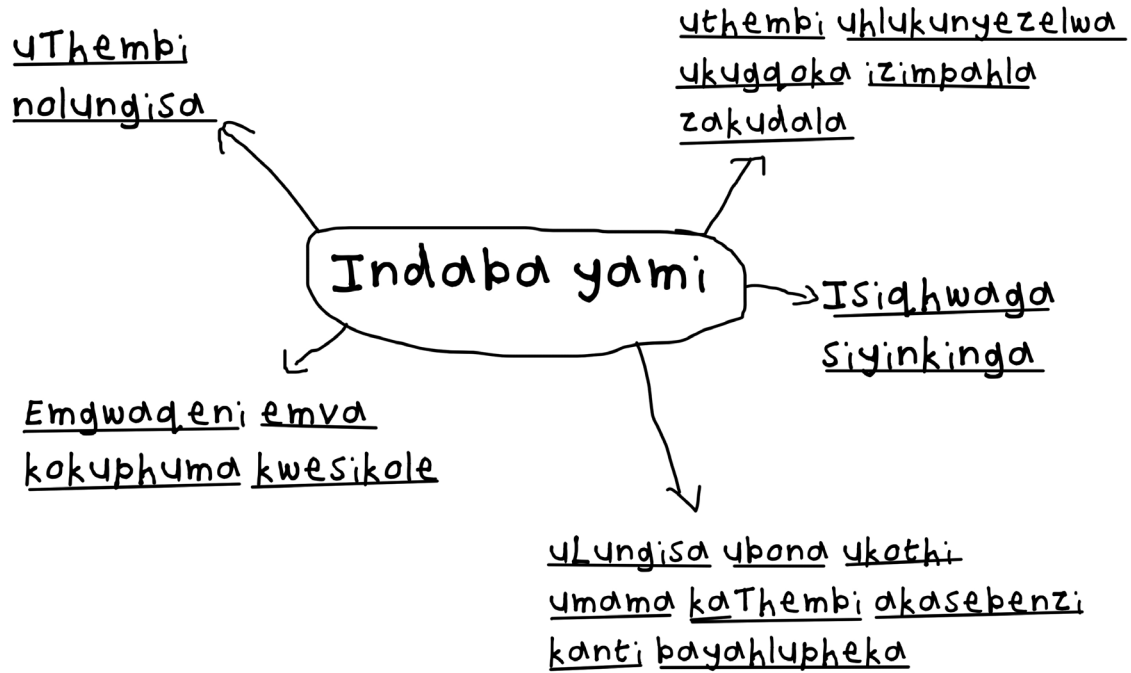 uThembi
nolungisa
uthembi uhlukunyezelwa
ukugqoka izimpahla
zakudala
Indaba yami
Isiqhwaga
siyinkinga
Emgwaqeni emva
kokuphuma kwesikole
uLungisa ubona ukothi
umama kaThembi akasebenzi
kanti bayahlupheka